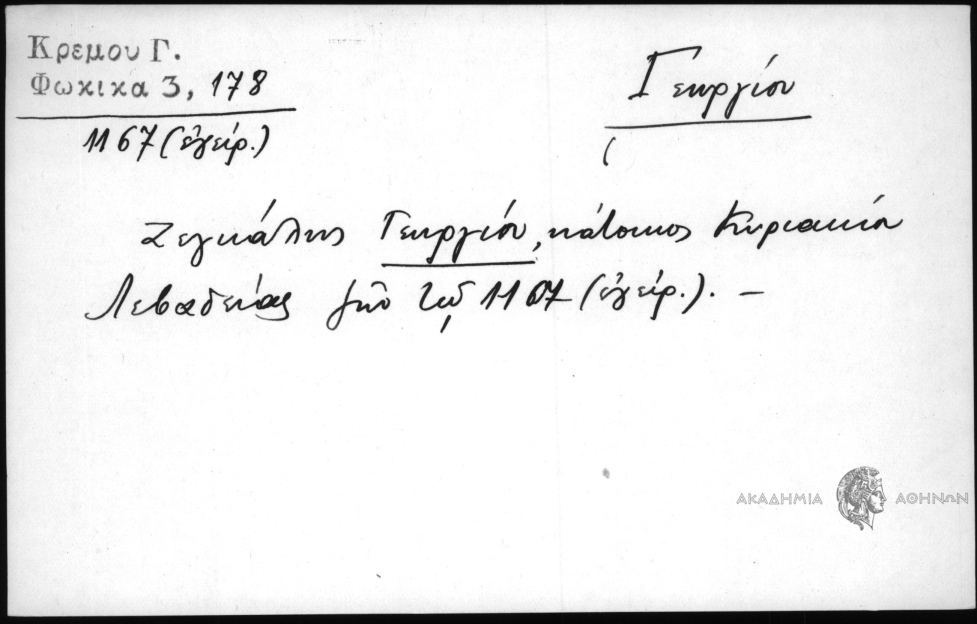 Κρεμου Γ.
Φωκικα 3, 178
1167 (ἐγείρ.)
Γεωργίου
Ζεγκάλης Γεωργίου, κάτοικος Κυριακίου
Λεβαδείας ζῶν τῷ 1167 (ἐγείρ.). –
ΑΚΑΔΗΜΙΑ ΑΘΗΝΩΝ